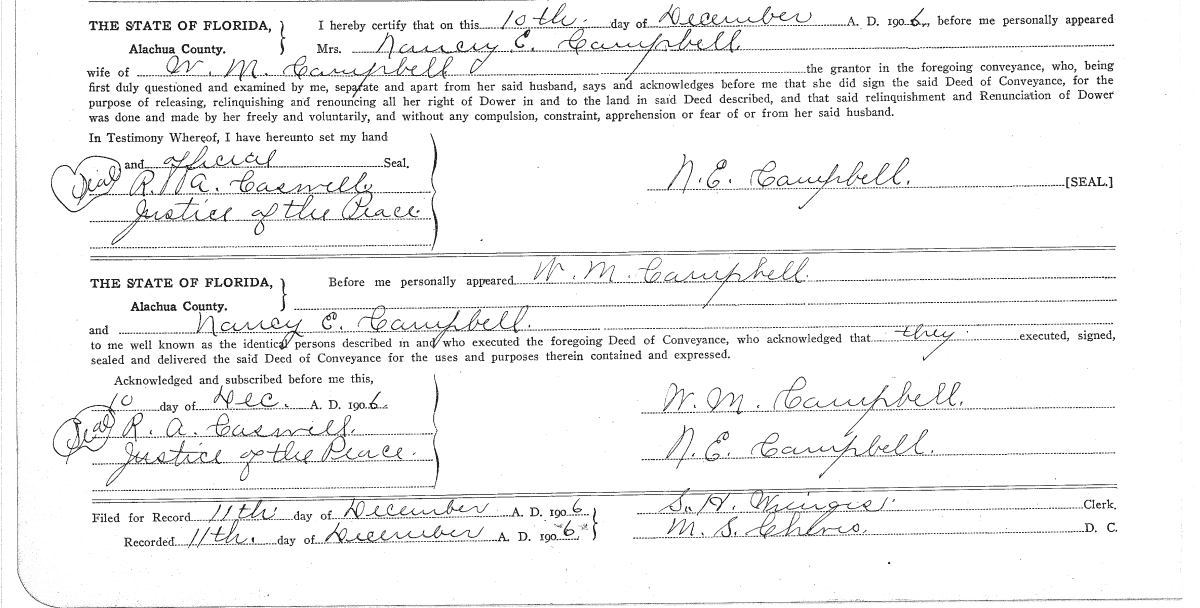 THE STATE OF FLORIDA, } I hereby certify that on this 10th. day of December A. D. 1906, before me personally appeared
Alachua County. Mrs. Nancy E. Campbell
wife of W. M. Campbell the grantor in the foregoing conveyance, who, being
first duly questioned and examined by me, separate and apart from her said husband, says and acknowledges before me that she did sign the said Deed of Conveyance, for the
purpose of releasing, relinquishing and renouncing all her right of Dower in and to the land in said Deed described, and that said relinquishment and Renunciation of Dower
was done and made by her freely and voluntarily, and without any compulsion, constraint, apprehension or fear of or from her said husband.
In Testimony Whereof, I have hereunto set my hand
and official Seal.
Seal R. A. Caswell N. E. Campbell. [SEAL.]
Justice of the Peace.
THE STATE OF FLORIDA, } Before me personally appeared W. M. Campbell.
Alachua County.
and Nancy E. Campbell.
to me well known as the identical persons described in and who executed the foregoing Deed of Conveyance, who acknowledged that they executed, signed,
sealed and delivered the said Deed of Conveyance for the uses and purposes therein contained and expressed.
Acknowledged and subscribed before me this,
10 day of Dec. A. D. 1906. W. M. Campbell.
Seal R. A. Caswell.
Justice of the Peace. N. E. Campbell.
Filed for Record 11th day of December A. D. 1906 } S. H. Clerk.
Recorded 11th. day of December A. D. 1906 M. S. D. C.